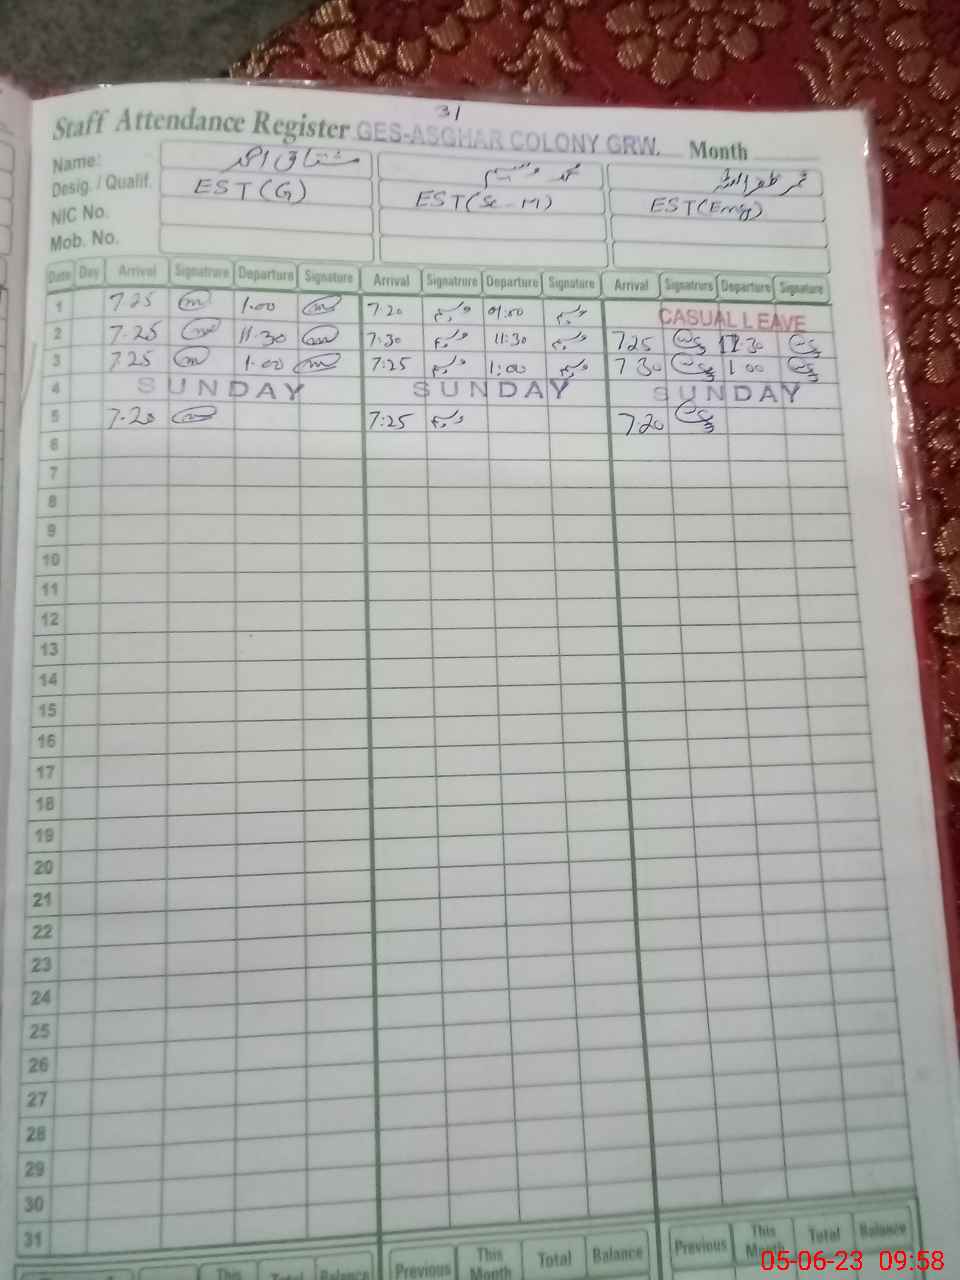 31
Staff Attendance Register GES-ASGHAR COLONY GRW. Month
Name: مشتاق احمد محمد وسیم
Desig. / Qualif. EST(G) EST(Sc-M) EST(Eng)
NIC No.
Mob. No.
Date Day Arrival Signatrure Departure Signature Arrival Signatrure Departure Signature Arrival Signatrure Departure Signature
1 7.25 1.00 7:20 01:00 CASUAL LEAVE
2 7.25 11.30 7:30 11:30 7 25 11.30
3 7.25 1.00 7:25 1:00 7 30 1 00
4 SUNDAY SUNDAY SUNDAY
5 7.20 7:25 7 20
6
7
8
9
10
11
12
13
14
15
16
17
18
19
20
21
22
23
24
25
26
27
28
29
30
31
This Total Balance Previous This Month Total Balance Previous This Month Total Balance
05-06-23 09:58